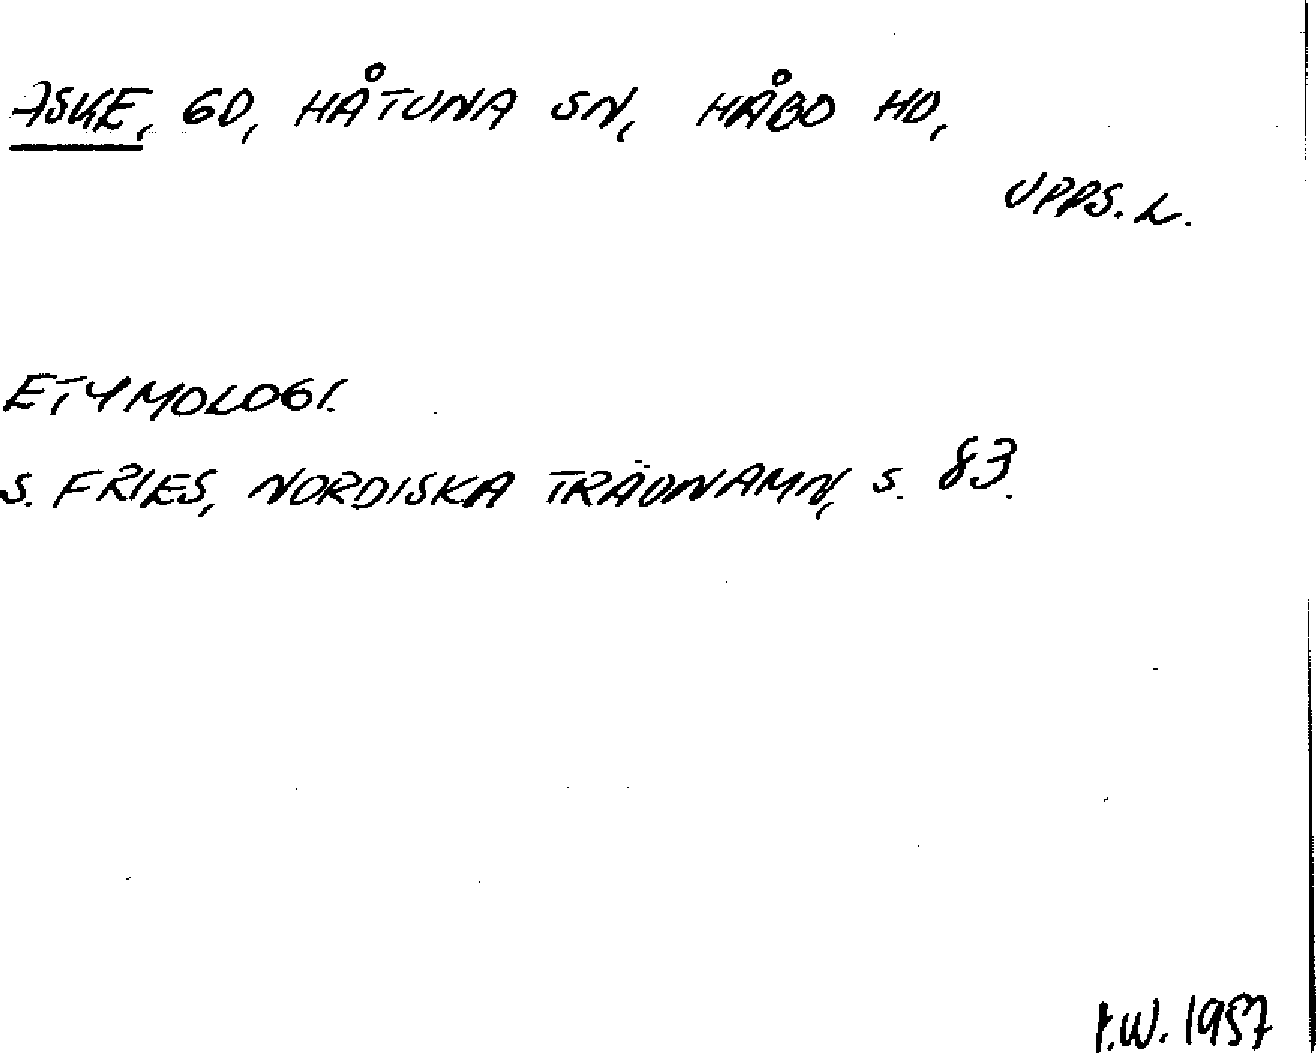 ASKE, GD, HÅTUNA SN, HÅBO HD,
UPPS. L.
ETYMOLOGI.
S. FRIES, NORDISKA TRÄDNAMN, S. 83.
P.W. 1957